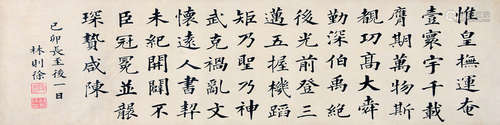 惟皇撫運奄
壹寰宇千載
膺期萬物斯
覩功高大舜
勤深伯禹絕
後光前登三
邁五握機蹈
矩乃聖乃神
武克禍亂文
懷遠人書契
未紀開闢不
臣冠冕並襲
琛贄咸陳
己卯長至後一日
林則徐